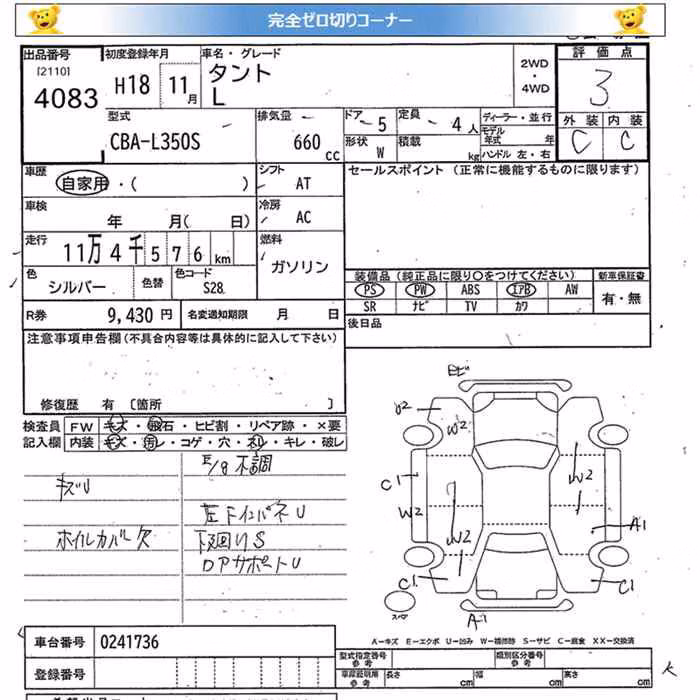 完全ゼロ切りコーナー
出品番号 初度登録年月 車名・グレード 評価点
[2110] タント 2WD
4083 H18 11月 L ・ 3
4WD
型式 排気量 ドア 5 定員 4人 ディーラー・並行 外装 内装
CBA-L350S 660cc 形状 W 積載 kg モデル年式 年 C C
ハンドル 左・右
車歴 シフト セールスポイント (正常に機能するものに限ります)
自家用・( ) AT
車検 冷房
年 月( 日) AC
走行 燃料
11万4千576km ガソリン
色 色替 色コード 装備品 (純正品に限り○をつけてください) 新車保証書
シルバー S28 PS PW ABS エアB AW 有・無
SR ナビ TV カワ
R券 9,430円 名変通知期限 月 日 後日品
注意事項申告欄 (不具合内容等は具体的に記入して下さい)
修復歴 有 〔箇所 〕
検査員 FW キズ・飛石・ヒビ割・リペア跡・×要
記入欄 内装 キズ・汚レ・コゲ・穴・ネジレ・キレ・破レ
E/g 不調
キズU
左FインパネU
ホイルカバー欠 下廻りS
ロアサポートU
トビ
W2
W2
C1
W2
W2
W2
W2
A1
C1
C1
スペア
A1
A-キズ E-エクボ U-凹み W-補修跡 S-サビ C-腐食 XX-交換済
車台番号 0241736
型式指定番号 参考 類別区分番号 参考
登録番号 車庫証明用 参考 長さ cm 幅 cm 高さ cm